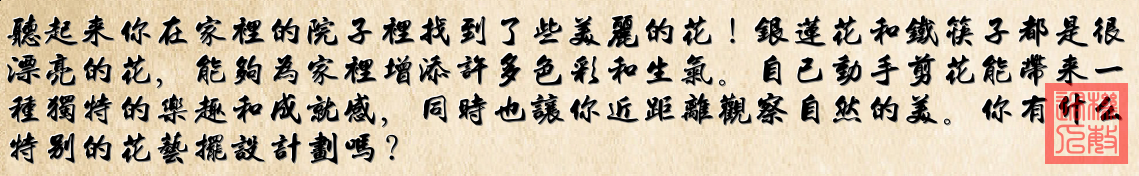 聽起来你在家裡的院子裡找到了些美麗的花！銀蓮花和鐵筷子都是很
漂亮的花，能夠為家裡增添許多色彩和生氣。自己動手剪花能帶来一
種獨特的樂趣和成就感，同時也讓你近距離觀察自然的美。你有什么
特别的花藝擺設計劃嗎？